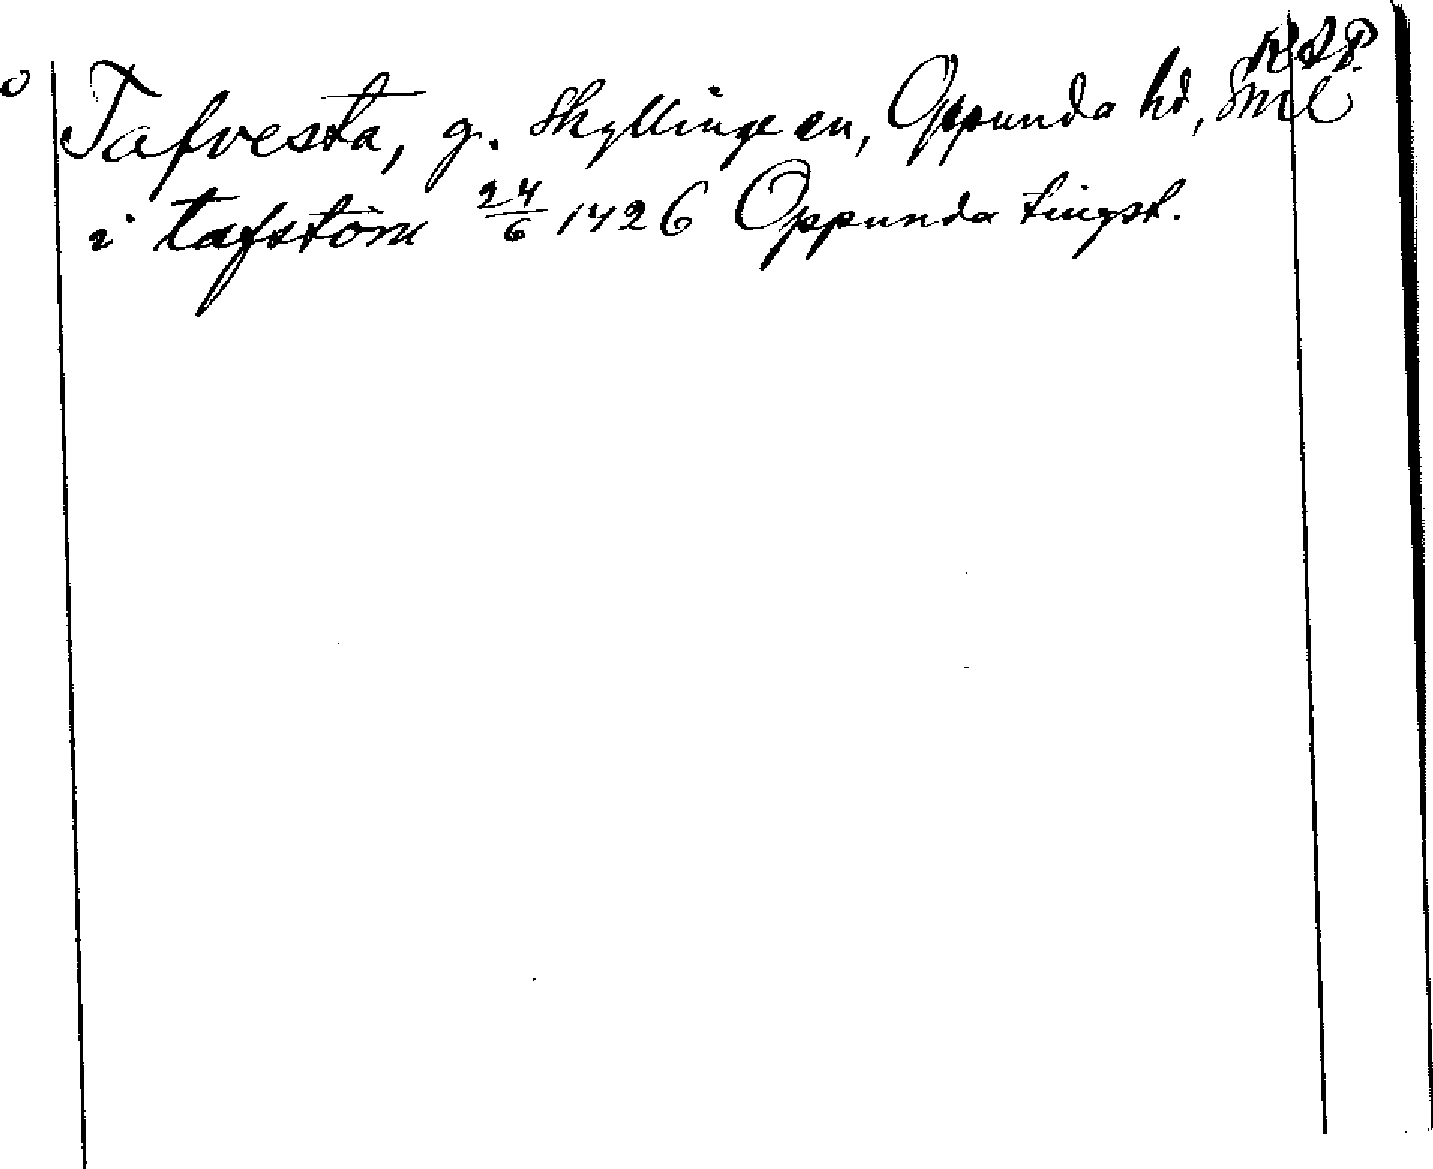 RAP.
o Tafvesta, g. Skyllinge sn, Oppunda hd, Sml
i tafstom 24/6 1426 Oppunda tingst.